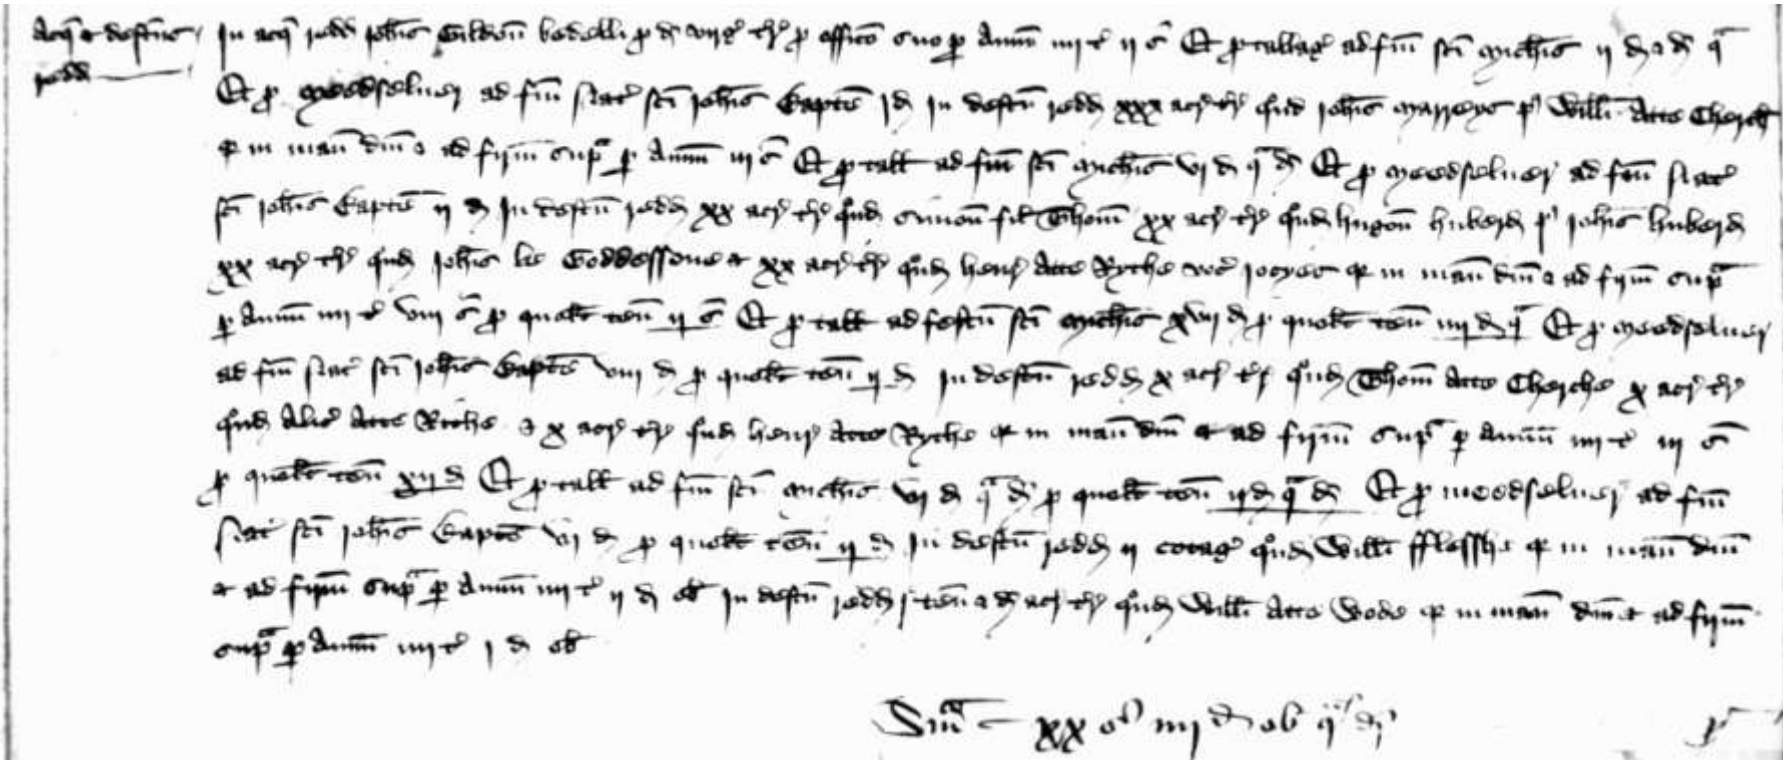 Acq̄ & defect̄us
redd̄
In acq̄ redd̄ Joh̄is Gilden̄ bedelli p̱ dī virḡ tr̄e p̱ officō suo p̱ Annū iiij tˀ ij s̄ Et p̱ tallaḡ ad fm̄ sc̄i Mich̄is ij d̄ & dī qᵃ
Et p̱ Medselver ad fm̄ Nat̄ sc̄i Joh̄is Bapt̄e j d̄ In defc̄u redd̄ xxx acr̄ tr̄e qōnd̄ Joh̄is Marreys Will̄i Atte Cherch
q̄ in man̄ dn̄i & ad firm̄ supᵃ p̱ Annū iij s̄ Et p̱ tall̄ ad fm̄ sc̄i Mich̄is vj d̄ qᵃ dī Et p̱ Medselver ad fm̄ Nat̄
sc̄i Joh̄is Bapt̄e ij d̄ In defc̄u redd̄ xx acr̄ tr̄e qōnd̄ Simon̄ fil̄ Thom̄ xx acr̄ tr̄e qōnd̄ Hugon̄ Huberd̄ Joh̄is Huberd̄
xx acr̄ tr̄e qōnd̄ Joh̄is le Goddessone & xx acr̄ tr̄e qōnd̄ Henr̄ Atte Rythe voc̄ Joryes q̄ in man̄ dn̄i & ad firm̄ supᵃ
p̱ Annū iiij tˀ viij s̄ p̱ quol̄t ten̄ ij s̄ Et p̱ tall̄ ad festū sc̄i Mich̄is xvij d̄ p̱ quol̄t ten̄ iiij d̄ qᵃ Et p̱ Medselver
ad fm̄ Nat̄ sc̄i Joh̄is Bapt̄e viij d̄ p̱ quol̄t ten̄ ij d̄ In defc̄u redd̄ x acr̄ tr̄e qōnd̄ Thom̄ Atte Cherche x acr̄ tr̄e
qōnd̄ Alic̄ Atte Rithe & x acr̄ tr̄e qōnd̄ Henr̄ Atte Rythe q̄ in man̄ dn̄i & ad firm̄ supᵃ p̱ Annū iiij tˀ iij s̄
p̱ quol̄t ten̄ xij d̄ Et p̱ tall̄ ad fm̄ sc̄i Mich̄is vj d̄ qᵃ dī p̱ quol̄t ten̄ ij d̄ qᵃ dī Et p̱ medselver ad fm̄
Nat̄ sc̄i Joh̄is Bapt̄e vj d̄ p̱ quol̄t ten̄ ij d̄ In defc̄u redd̄ ij cotaḡ qōnd̄ Will̄i fflesshe q̄ in man̄ dn̄i
& ad firm̄ supᵃ p̱ Annū iiij tˀ ij d̄ ob̄ In defc̄u redd̄ j ten̄ & dī acr̄ tr̄e qōnd̄ Will̄i Atte Wode q̄ in man̄ dn̄i & ad firm̄
supᵃ p̱ Annū iiij tˀ j d̄ ob̄
Sm̄ᵃ xx s̄ iiij d̄ ob̄ qᵃ dī